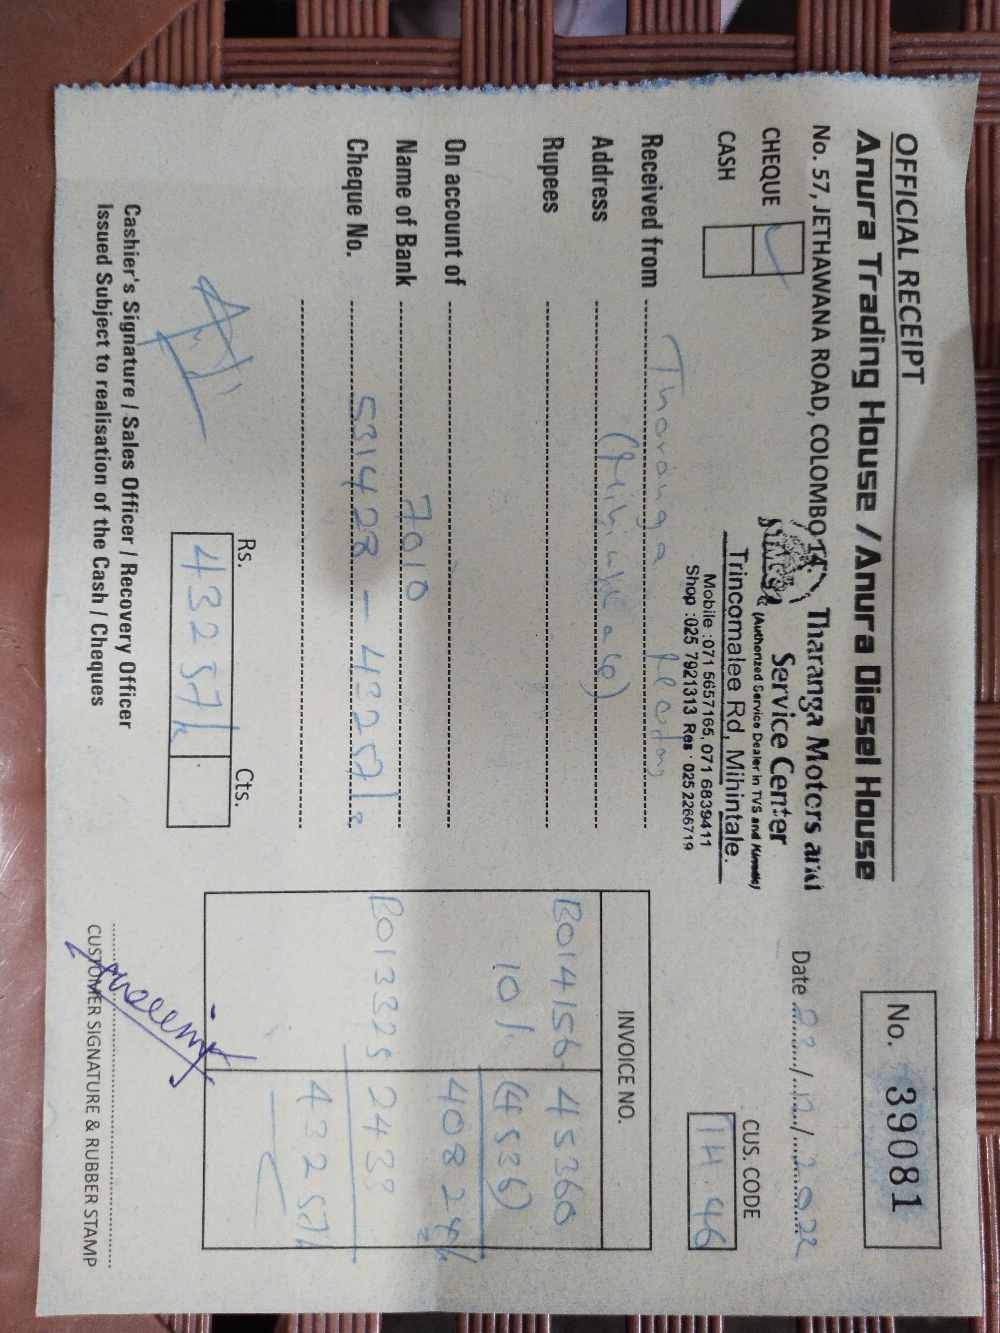 OFFICIAL RECEIPT
Anura Trading House / Anura Diesel House
No. 57, JETHAWANA ROAD, COLOMBO 14.
No. 39081
Tharanga Motors and
Service Center
(Authorized Service Dealer in TVS and
Trincomalee Rd, Mihintale.
Mobile :071 5657165, 071 6839411
Shop :025 7921313 Res : 025 2266719
Date 12/2022
CHEQUE
CASH
CUS. CODE
1H.46
Received from Tharanga
Address
Rupees
On account of
Name of Bank 7010
Cheque No. 531428 - 43257/=
Rs. Cts.
43257/=
INVOICE NO.
B014156 45360
10% (4536)
40824/=
B013325 2433
43257/=
Cashier's Signature / Sales Officer / Recovery Officer
Issued Subject to realisation of the Cash / Cheques
CUSTOMER SIGNATURE & RUBBER STAMP